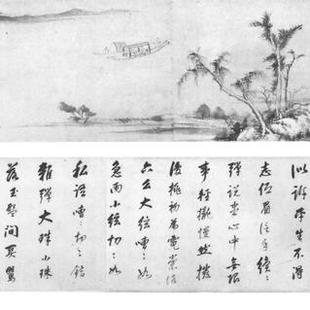 似訴平生不得
志低眉信手續々
彈說盡心中無限
事輕攏慢撚撥
復挑初為霓裳
六么大弦嘈々如
急雨小弦切々如
私語嘈々切々錯
雜彈大珠小珠
落玉盤間關鶯